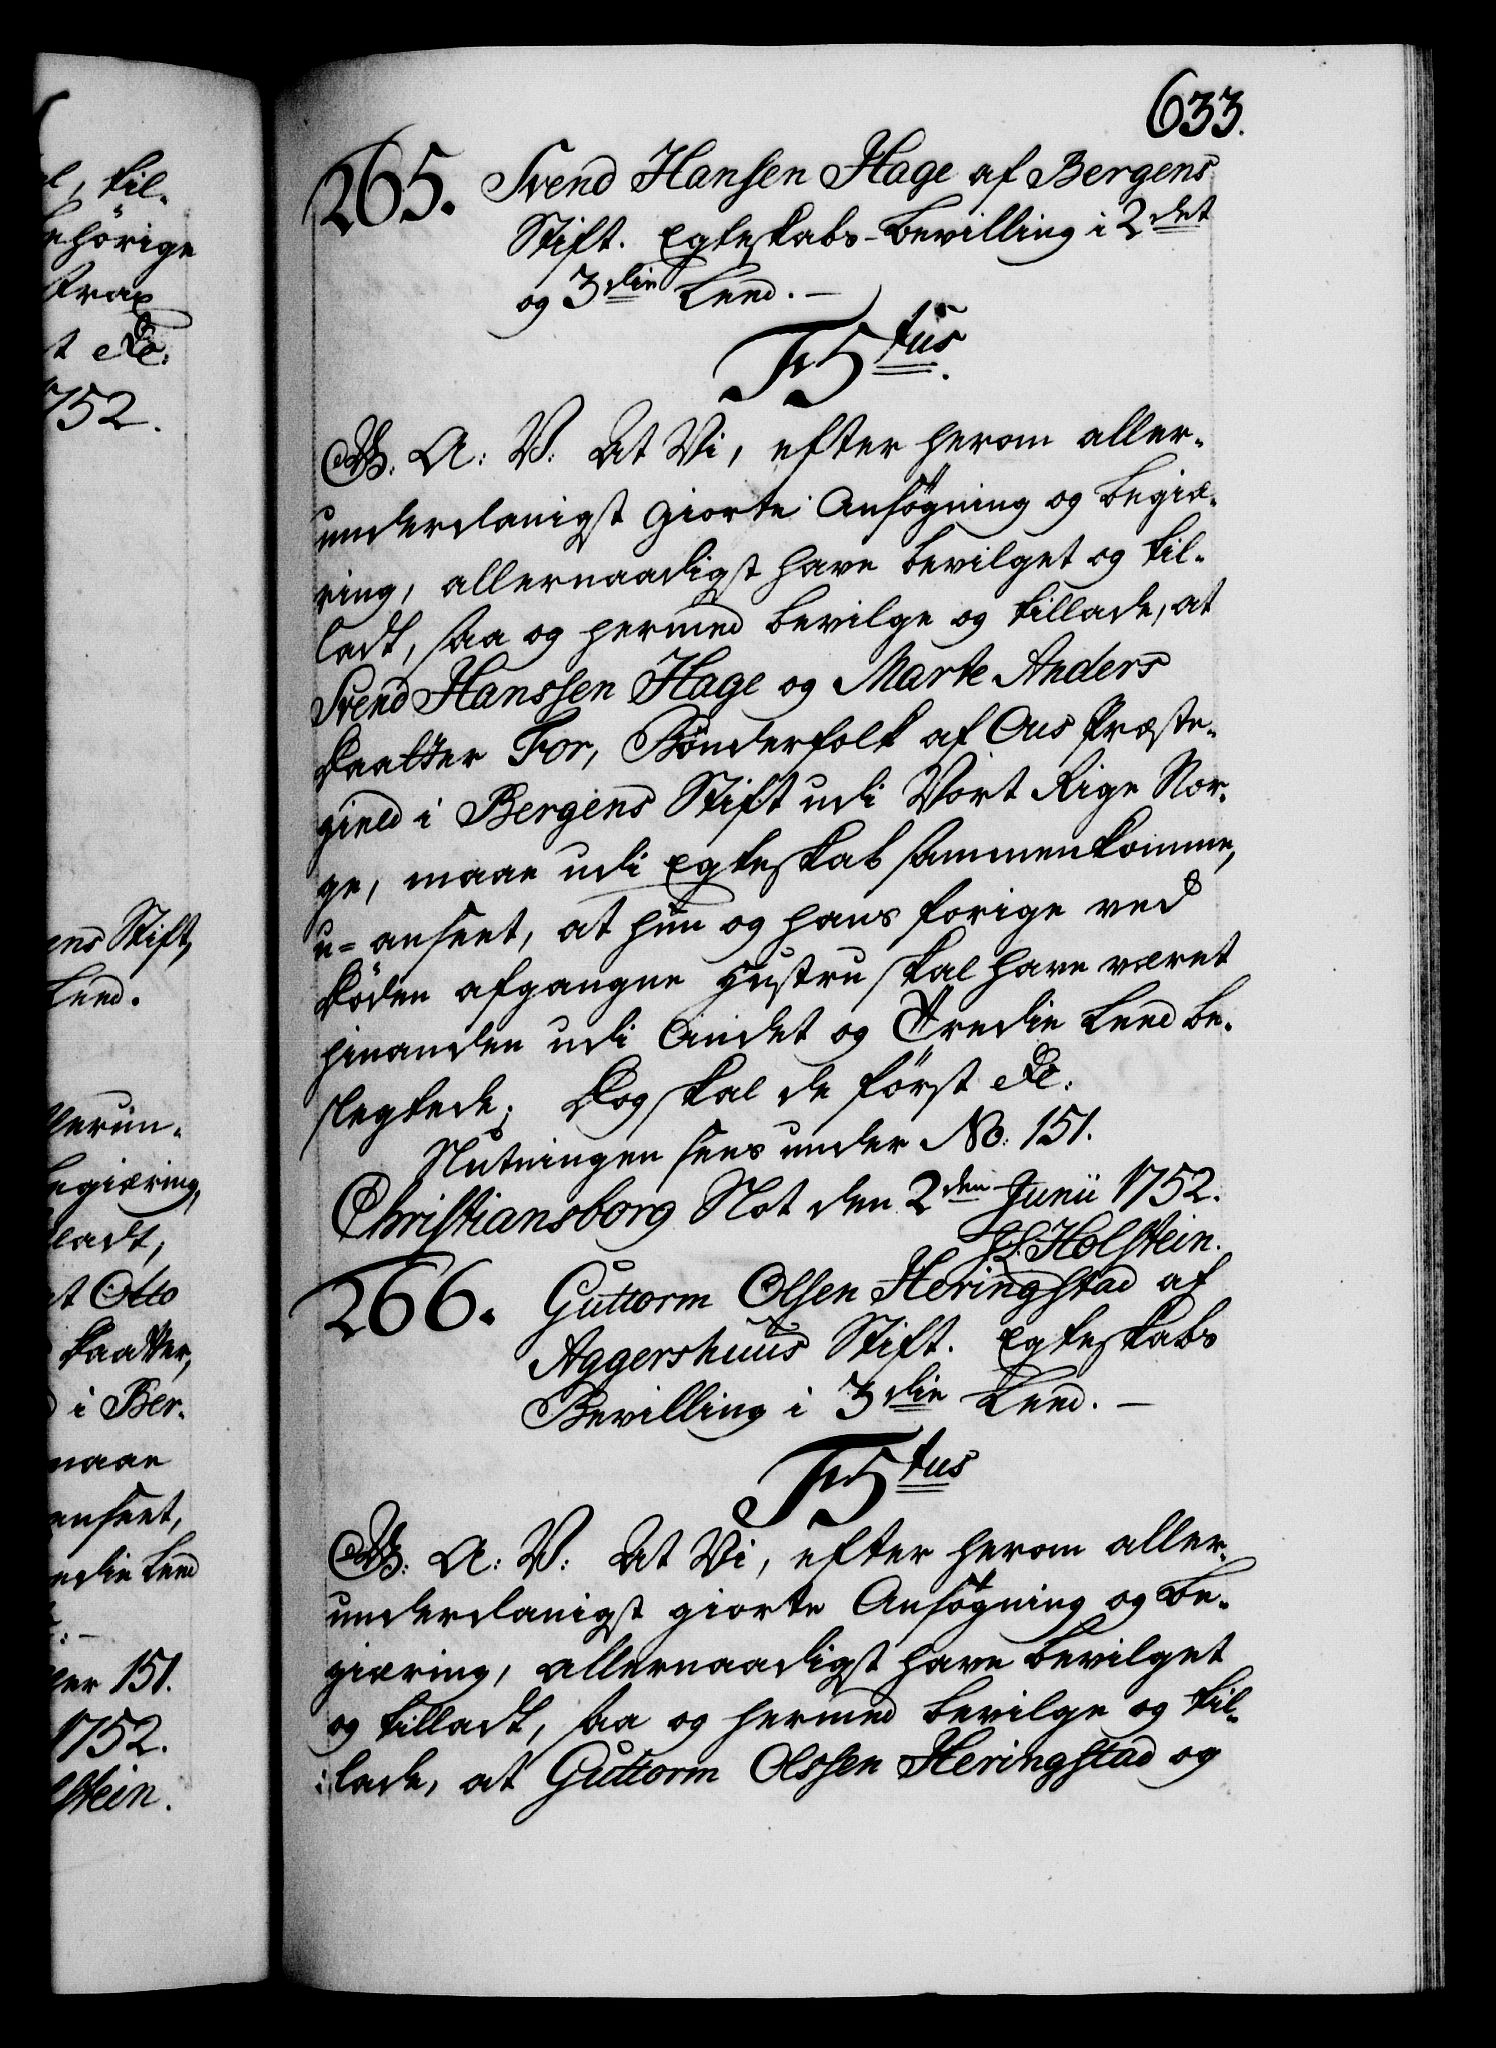 633.
265. Svend Hansen Hage af Bergens
Stift. Egteskabs-Bevilling i 2det
og 3die Leed.
F5tus.
G. A: V: At Vi, efter herom aller-
underdanigst giorte Ansøgning og begiæ-
ring, allernaadigst have bevilget og til-
ladt, saa og hermed bevilge og tillade, at
Svend Hanssen Hage og Marte Anders
Daatter Tor, Bönderfolk af Ous Præste-
gield i Bergens Stift udi Vort Rige Nor-
ge, maae udi Egteskab sammenkomme,
u-anseet, at hun og hans forige ved
Döden afgangne Hustru skal have været
hinanden udi Andet og Tredie Leed be-
slegtede; Dog skal de først &c:
Slutningen sees under No: 151.
Christiansborg Slot den 2den Junii 1752.
J L Holstein.
266. Guttorm Olsen Heringstad af
Aggershuus Stift. Egteskabs
Bevilling i 3die Leed.
F5tus
G. A: V: At Vi, efter herom aller-
underdanigst giorte Ansøgning og be-
giæring, allernaadigst have bevilget
og tilladt, saa og hermed bevilge og til-
lade, at Guttorm Olssen Heringstad og
til-
hörige
Strax
&c:
1752.
Stift,
Leed.
allerun-
Begiæring,
ladt,
at Otto
Daatter,
i Ber-
maae
anseet,
Tredie Leed
under 151.
1752.
Holstein.